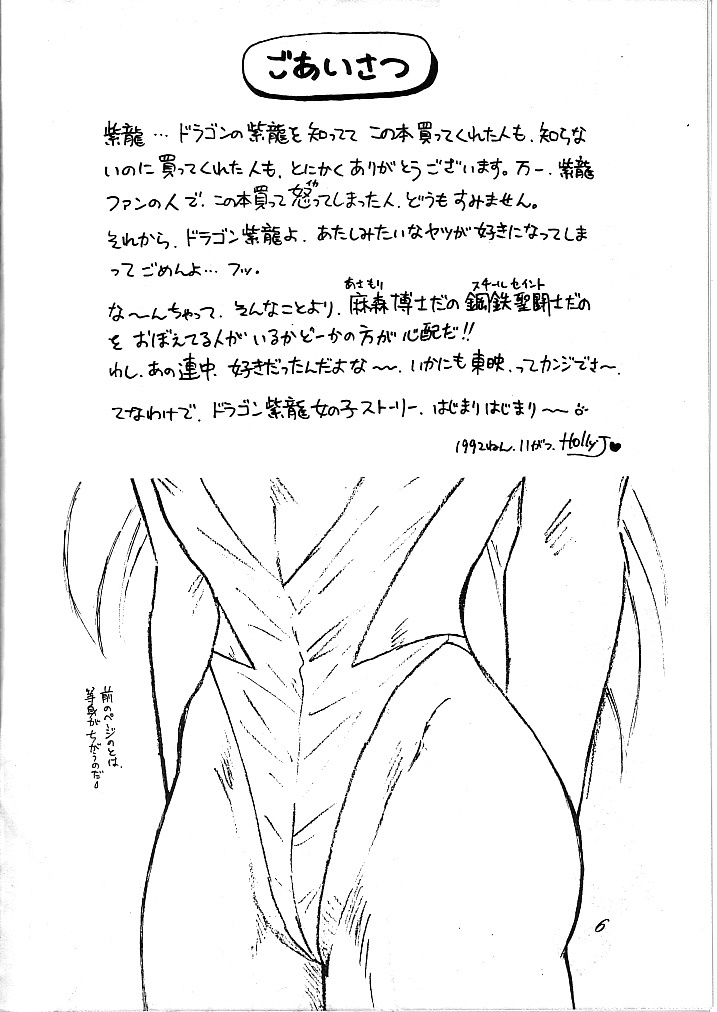 ごあいさつ
紫龍…ドラゴンの紫龍を知ってて この本買ってくれた人も、知らな
いのに買ってくれた人も、とにかくありがとうございます。万一、紫龍
ファンの人で、この本買って怒ってしまった人、どうもすみません。
それから、ドラゴン紫龍よ、あたしみたいなヤツが好きになってしま
ってごめんよ…フッ。
な〜んちゃって、そんなことより、麻森博士だの鋼鉄聖闘士だの
を おぼえてる人が いるかどーかの方が 心配だ!!
わし、あの連中、好きだったんだよな〜〜、いかにも東映、ってカンジでさ〜、
てなわけで、ドラゴン紫龍女の子ストーリー、はじまりはじまり〜〜
1992ねん、11がつ、Holly J♥
前のページのとは、
等身がちがうのだ。
6